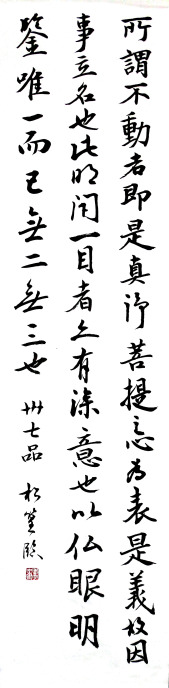 所謂不動者即是真浄菩提心為表是義故因
事立名也此明閇一目者有深意也以仏眼明
鑒唯一而已無二無三也 卅七品